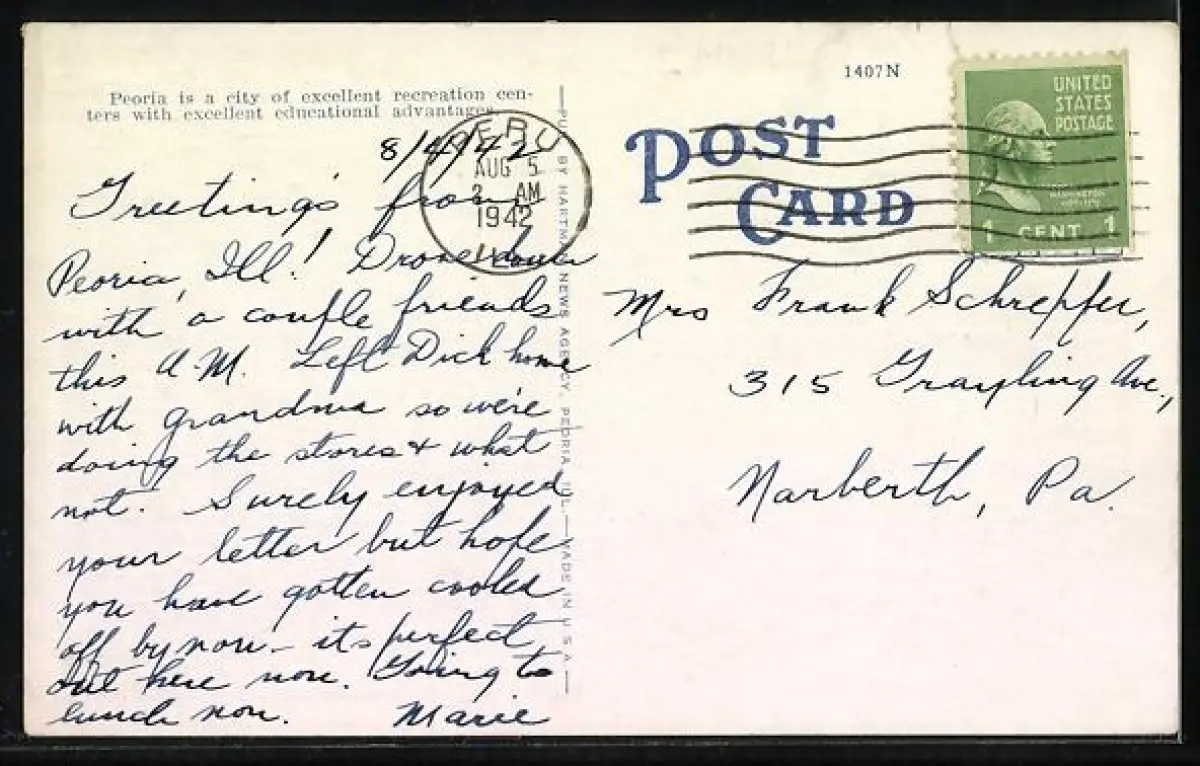 Peoria is a city of excellent recreation cen-
ters with excellent educational advantages.
8/4/42
Greetings from
Peoria, Ill! Drove down
with a couple friends
this A.M. Left Dick home
with grandma so we're
doing the stores & what
not. Surely enjoyed
your letter but hope
you have gotten cooled
off by now - its perfect
out here now. Going to
lunch now. Marie
PERU
AUG 5
2 AM
1942
ILL.
PUB. BY HARTMAN NEWS AGENCY, PEORIA, ILL. — MADE IN U.S.A.
1407N
POST
CARD
UNITED
STATES
POSTAGE
1 CENT 1
Mrs Frank Schrepfer,
315 Grayling Ave.,
Narberth, Pa.